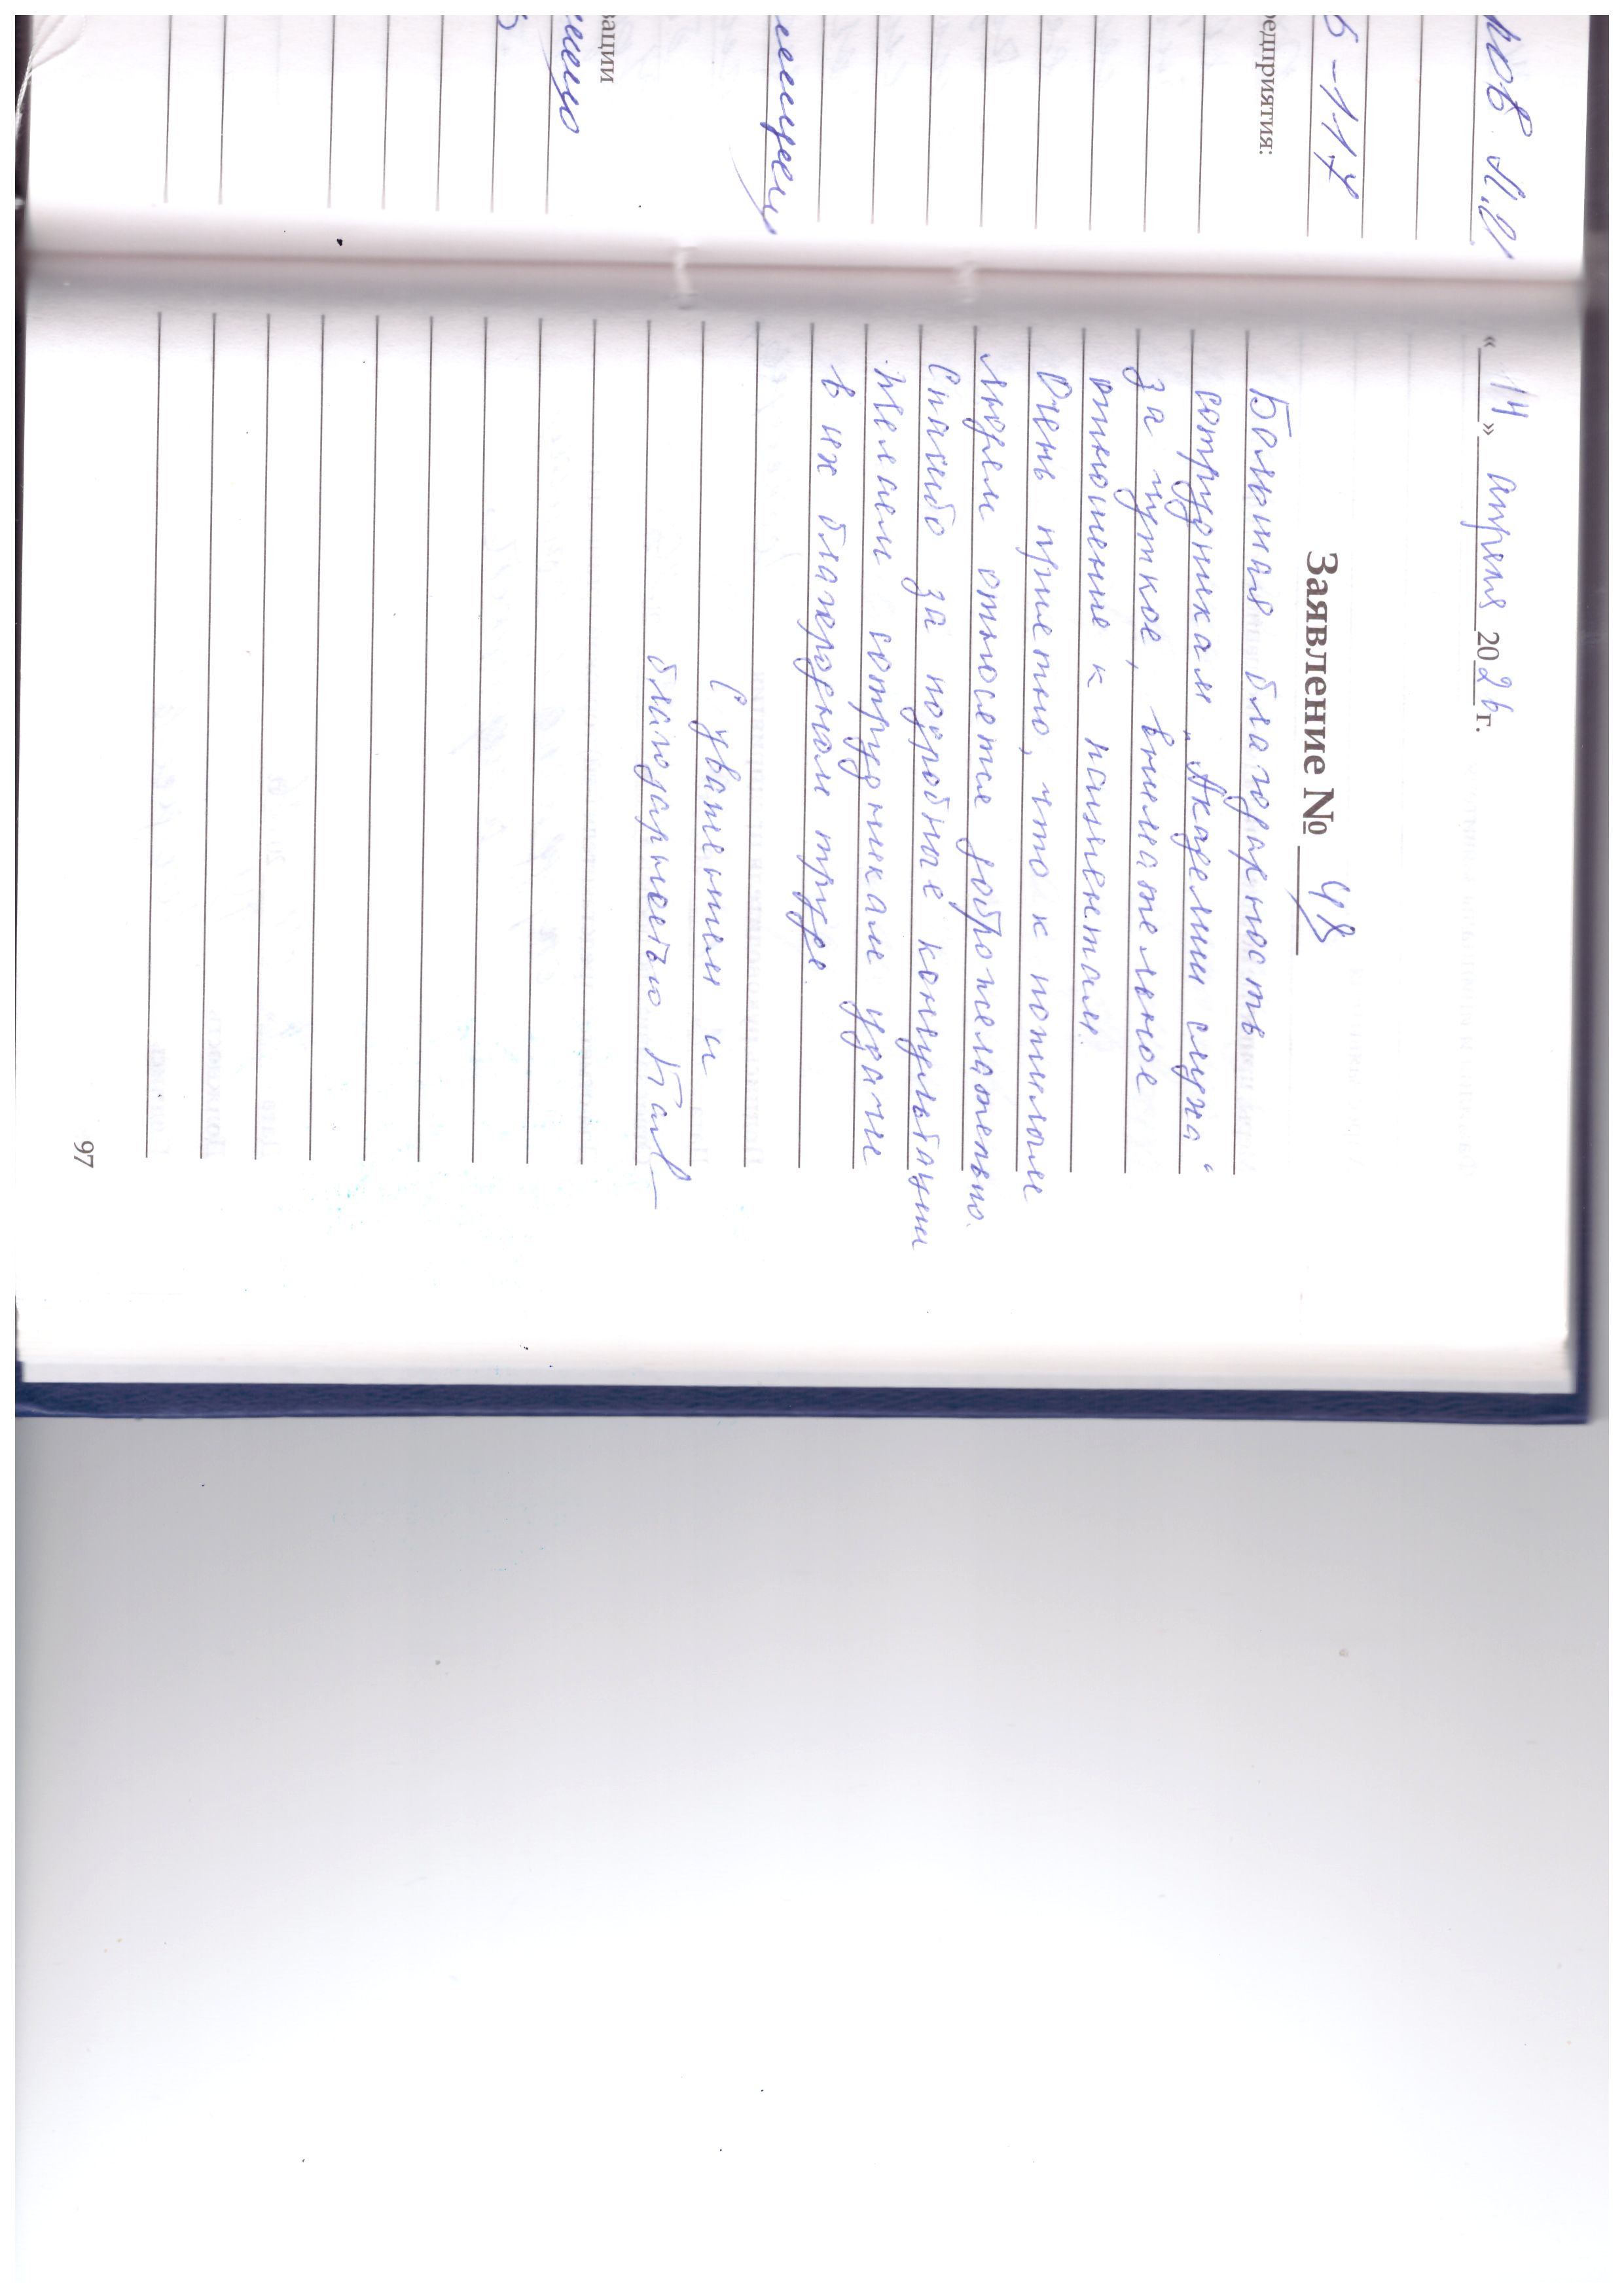 « 14 » апреля 2026 г.
Заявление № 48
Большая благодарность
сотрудникам „Академии слуха“
за чуткое, внимательное
отношение к пациентам.
Очень приятно, что к пожилым
людям относятся доброжелательно.
Спасибо за подробные консультации
Желаем сотрудникам удачи
в их благородном труде.
С уважением и
благодарностью
97
ков Л.И
5-117
едприятия:
зации